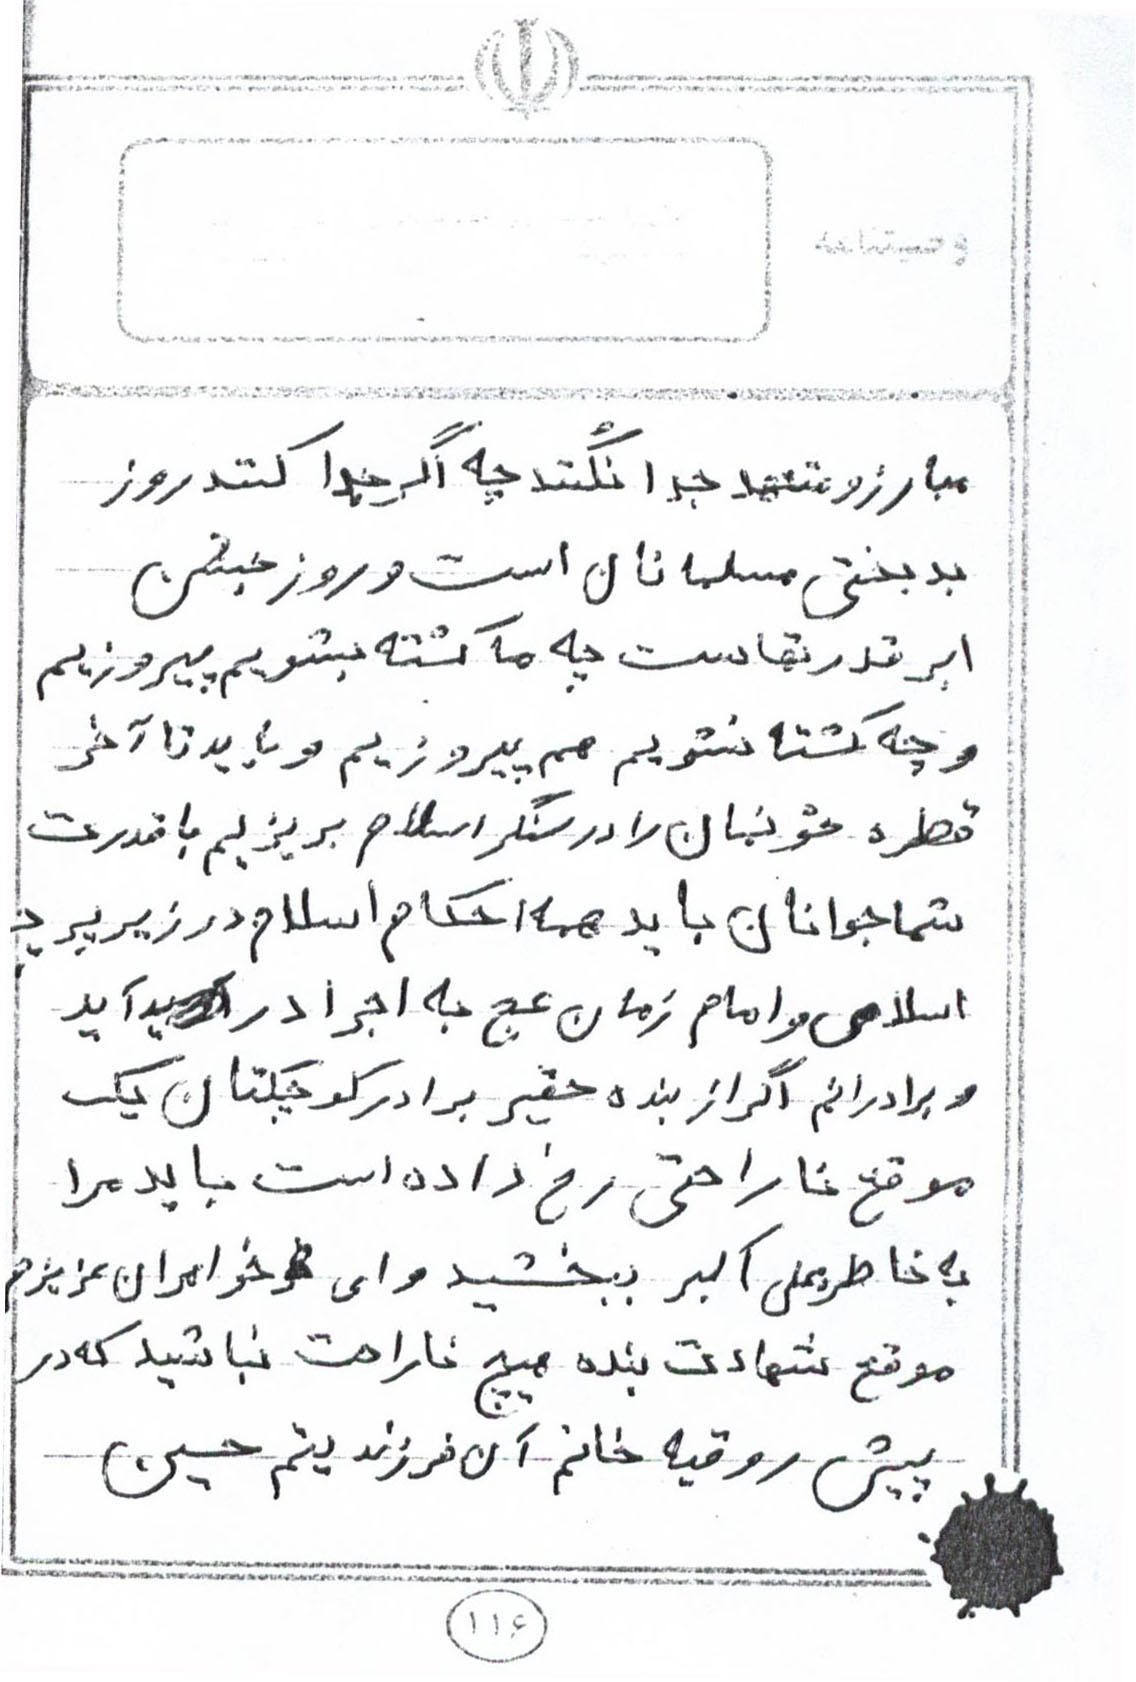 وصیتنامه
مبارز و متعهد جدا نکنند چه اگر جدا کنند روز
بدبختی مسلمانان است و روز جشن
ابرقدرتهاست چه ما کشته بشویم پیروزیم
و چه کشته نشویم هم پیروزیم و باید تا آخر
قطره خونمان را در سنگر اسلام بریزیم با قدرت
شما جوانان باید همه احکام اسلام در زیر پرچم
اسلامی و امام زمان عج به اجرا در آید
و برادرانم اگر از بنده حقیر برادر کوچکتان یک
موقع ناراحتی رخ داده است باید مرا
به خاطر علی اکبر ببخشید و ای خواهران عزیزم
موقع شهادت بنده هیچ ناراحت نباشید که در
پیش روقیه خانم آن فرزند یتم حسین
۱۱۶